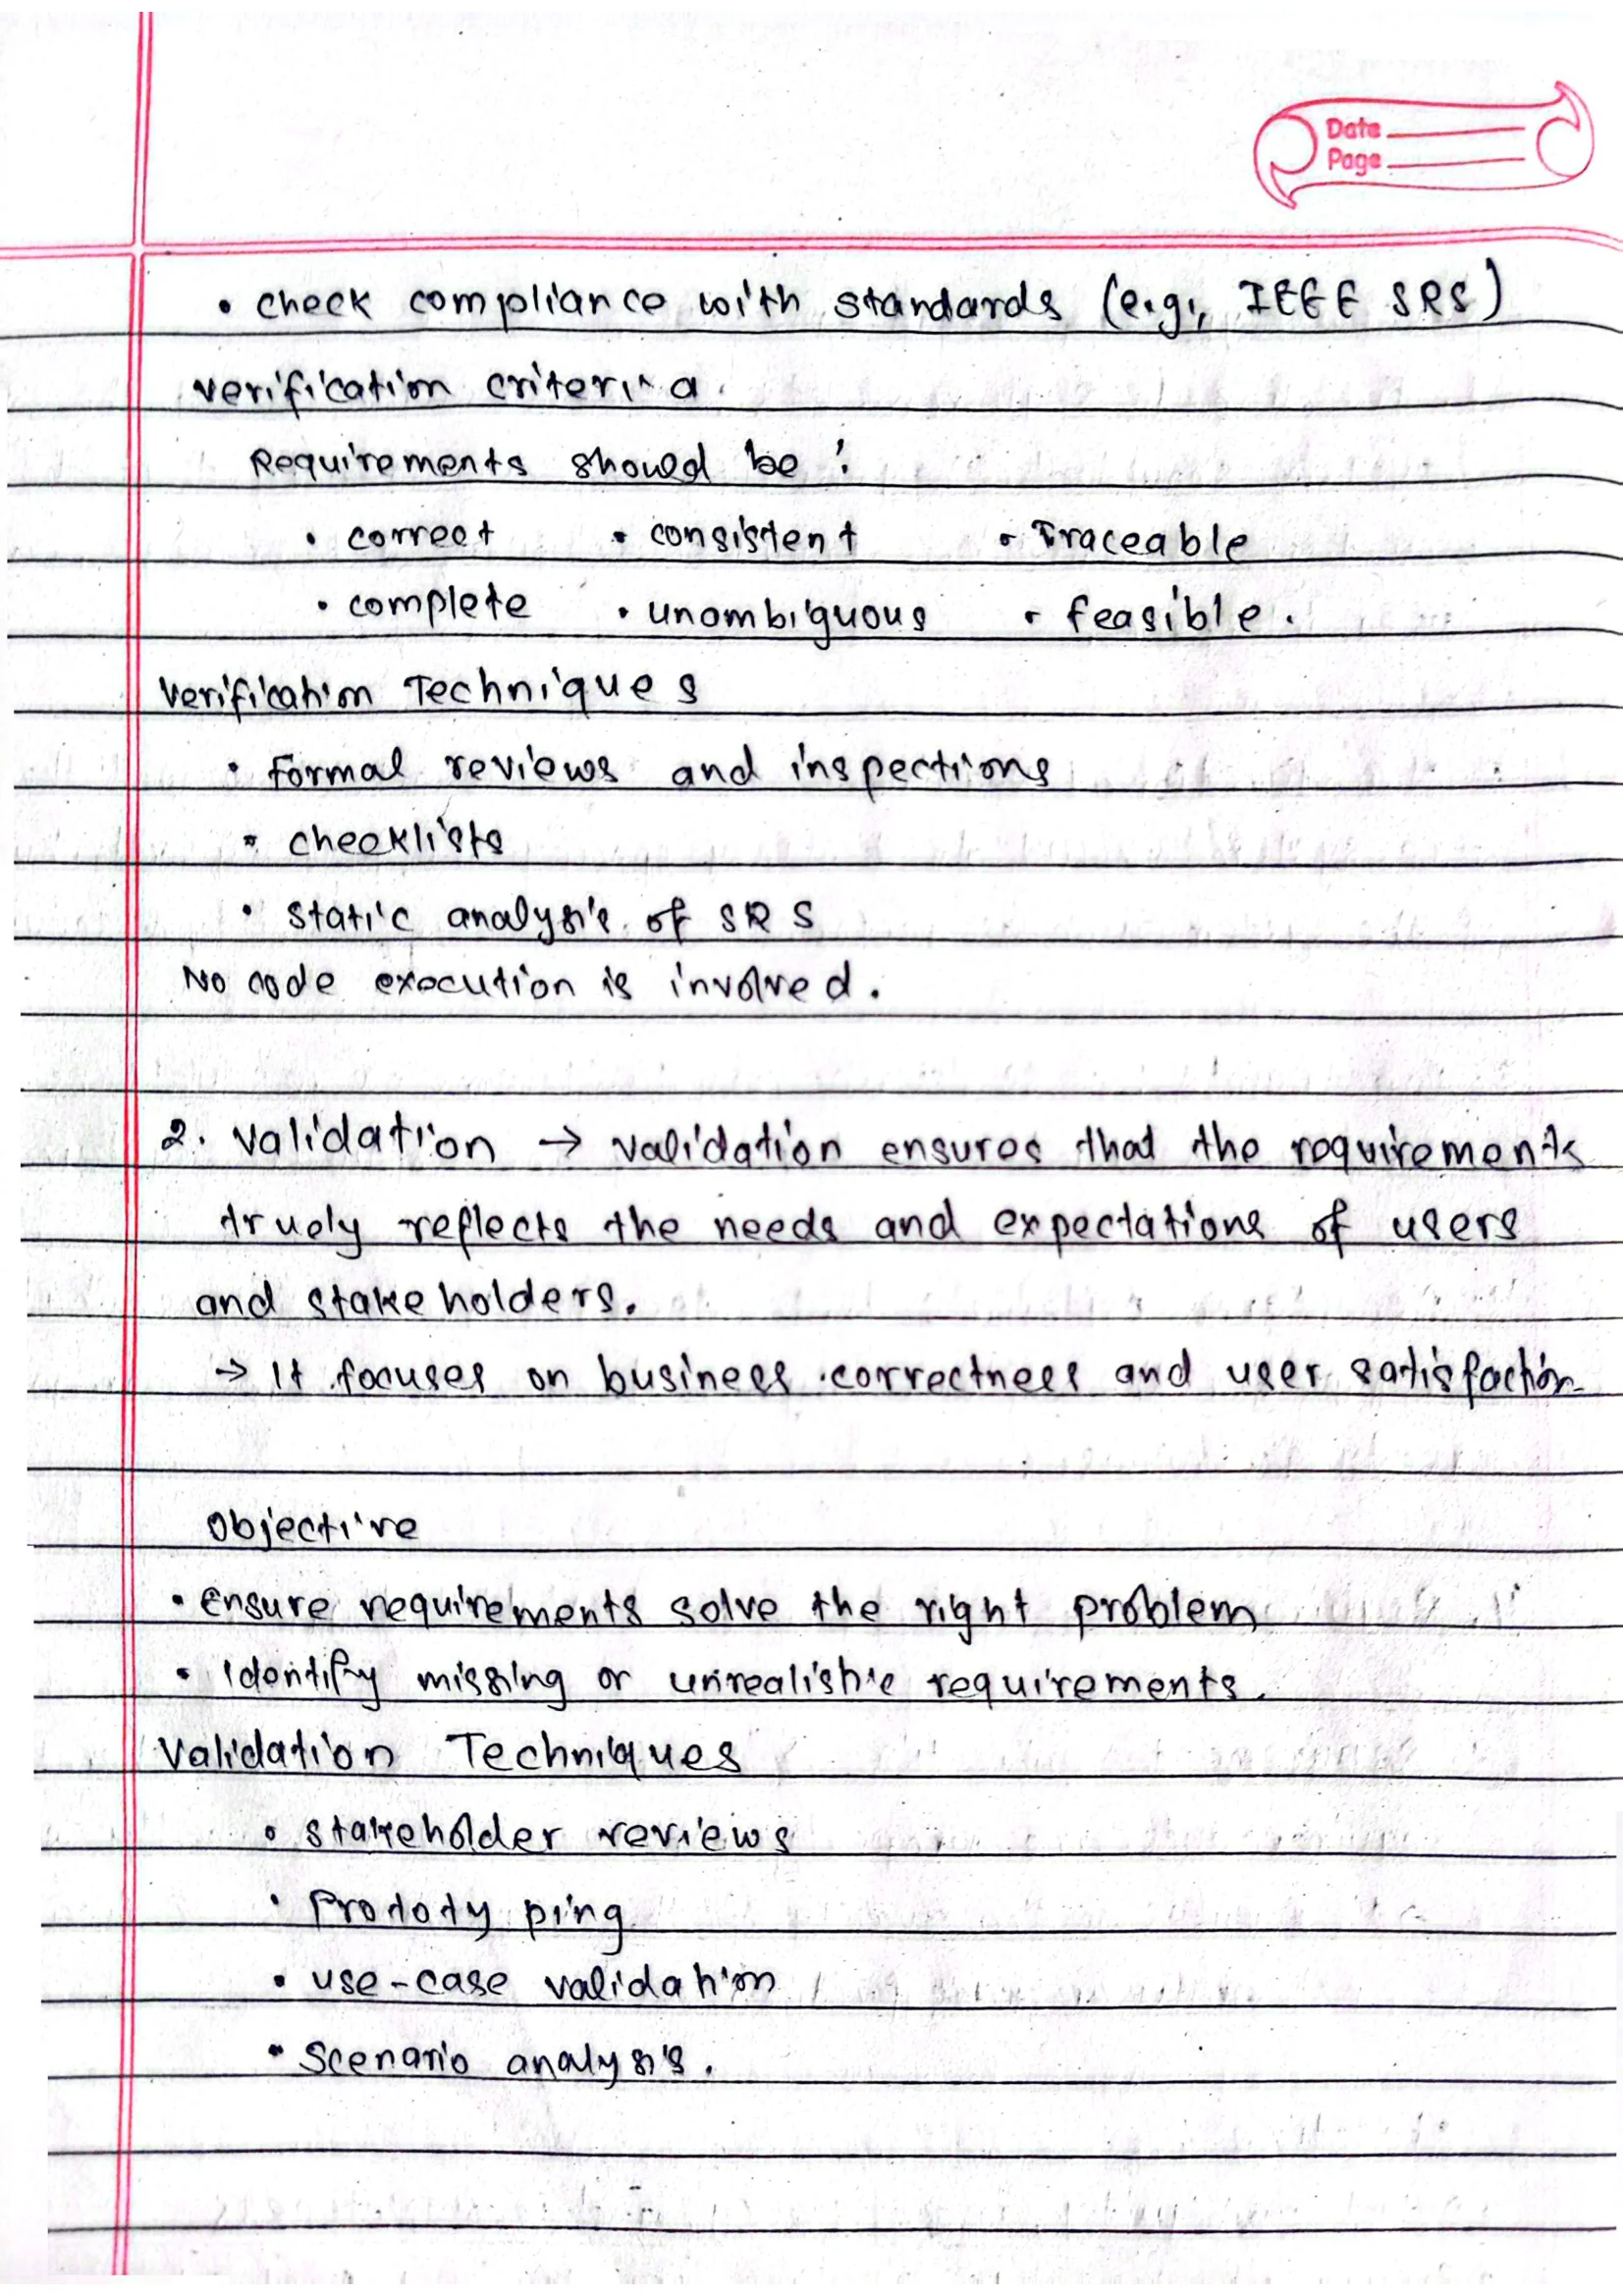 Date
Page
• check compliance with standards (e.g., IEEE SRS)
verification criteria.
Requirements should be :
• correct • consistent • Traceable
• complete • unambiguous • feasible.
Verification Techniques
• Formal reviews and inspections
• checklists
• static analysis of SRS
No code execution is involved.
2. Validation → validation ensures that the requirements
truely reflects the needs and expectations of users
and stakeholders.
→ It focuses on business correctness and user satisfaction
Objective
• Ensure requirements solve the right problem
• Identify missing or unrealistic requirements.
Validation Techniques
• stakeholder reviews
• Prototyping
• use-case validation
• Scenario analysis.